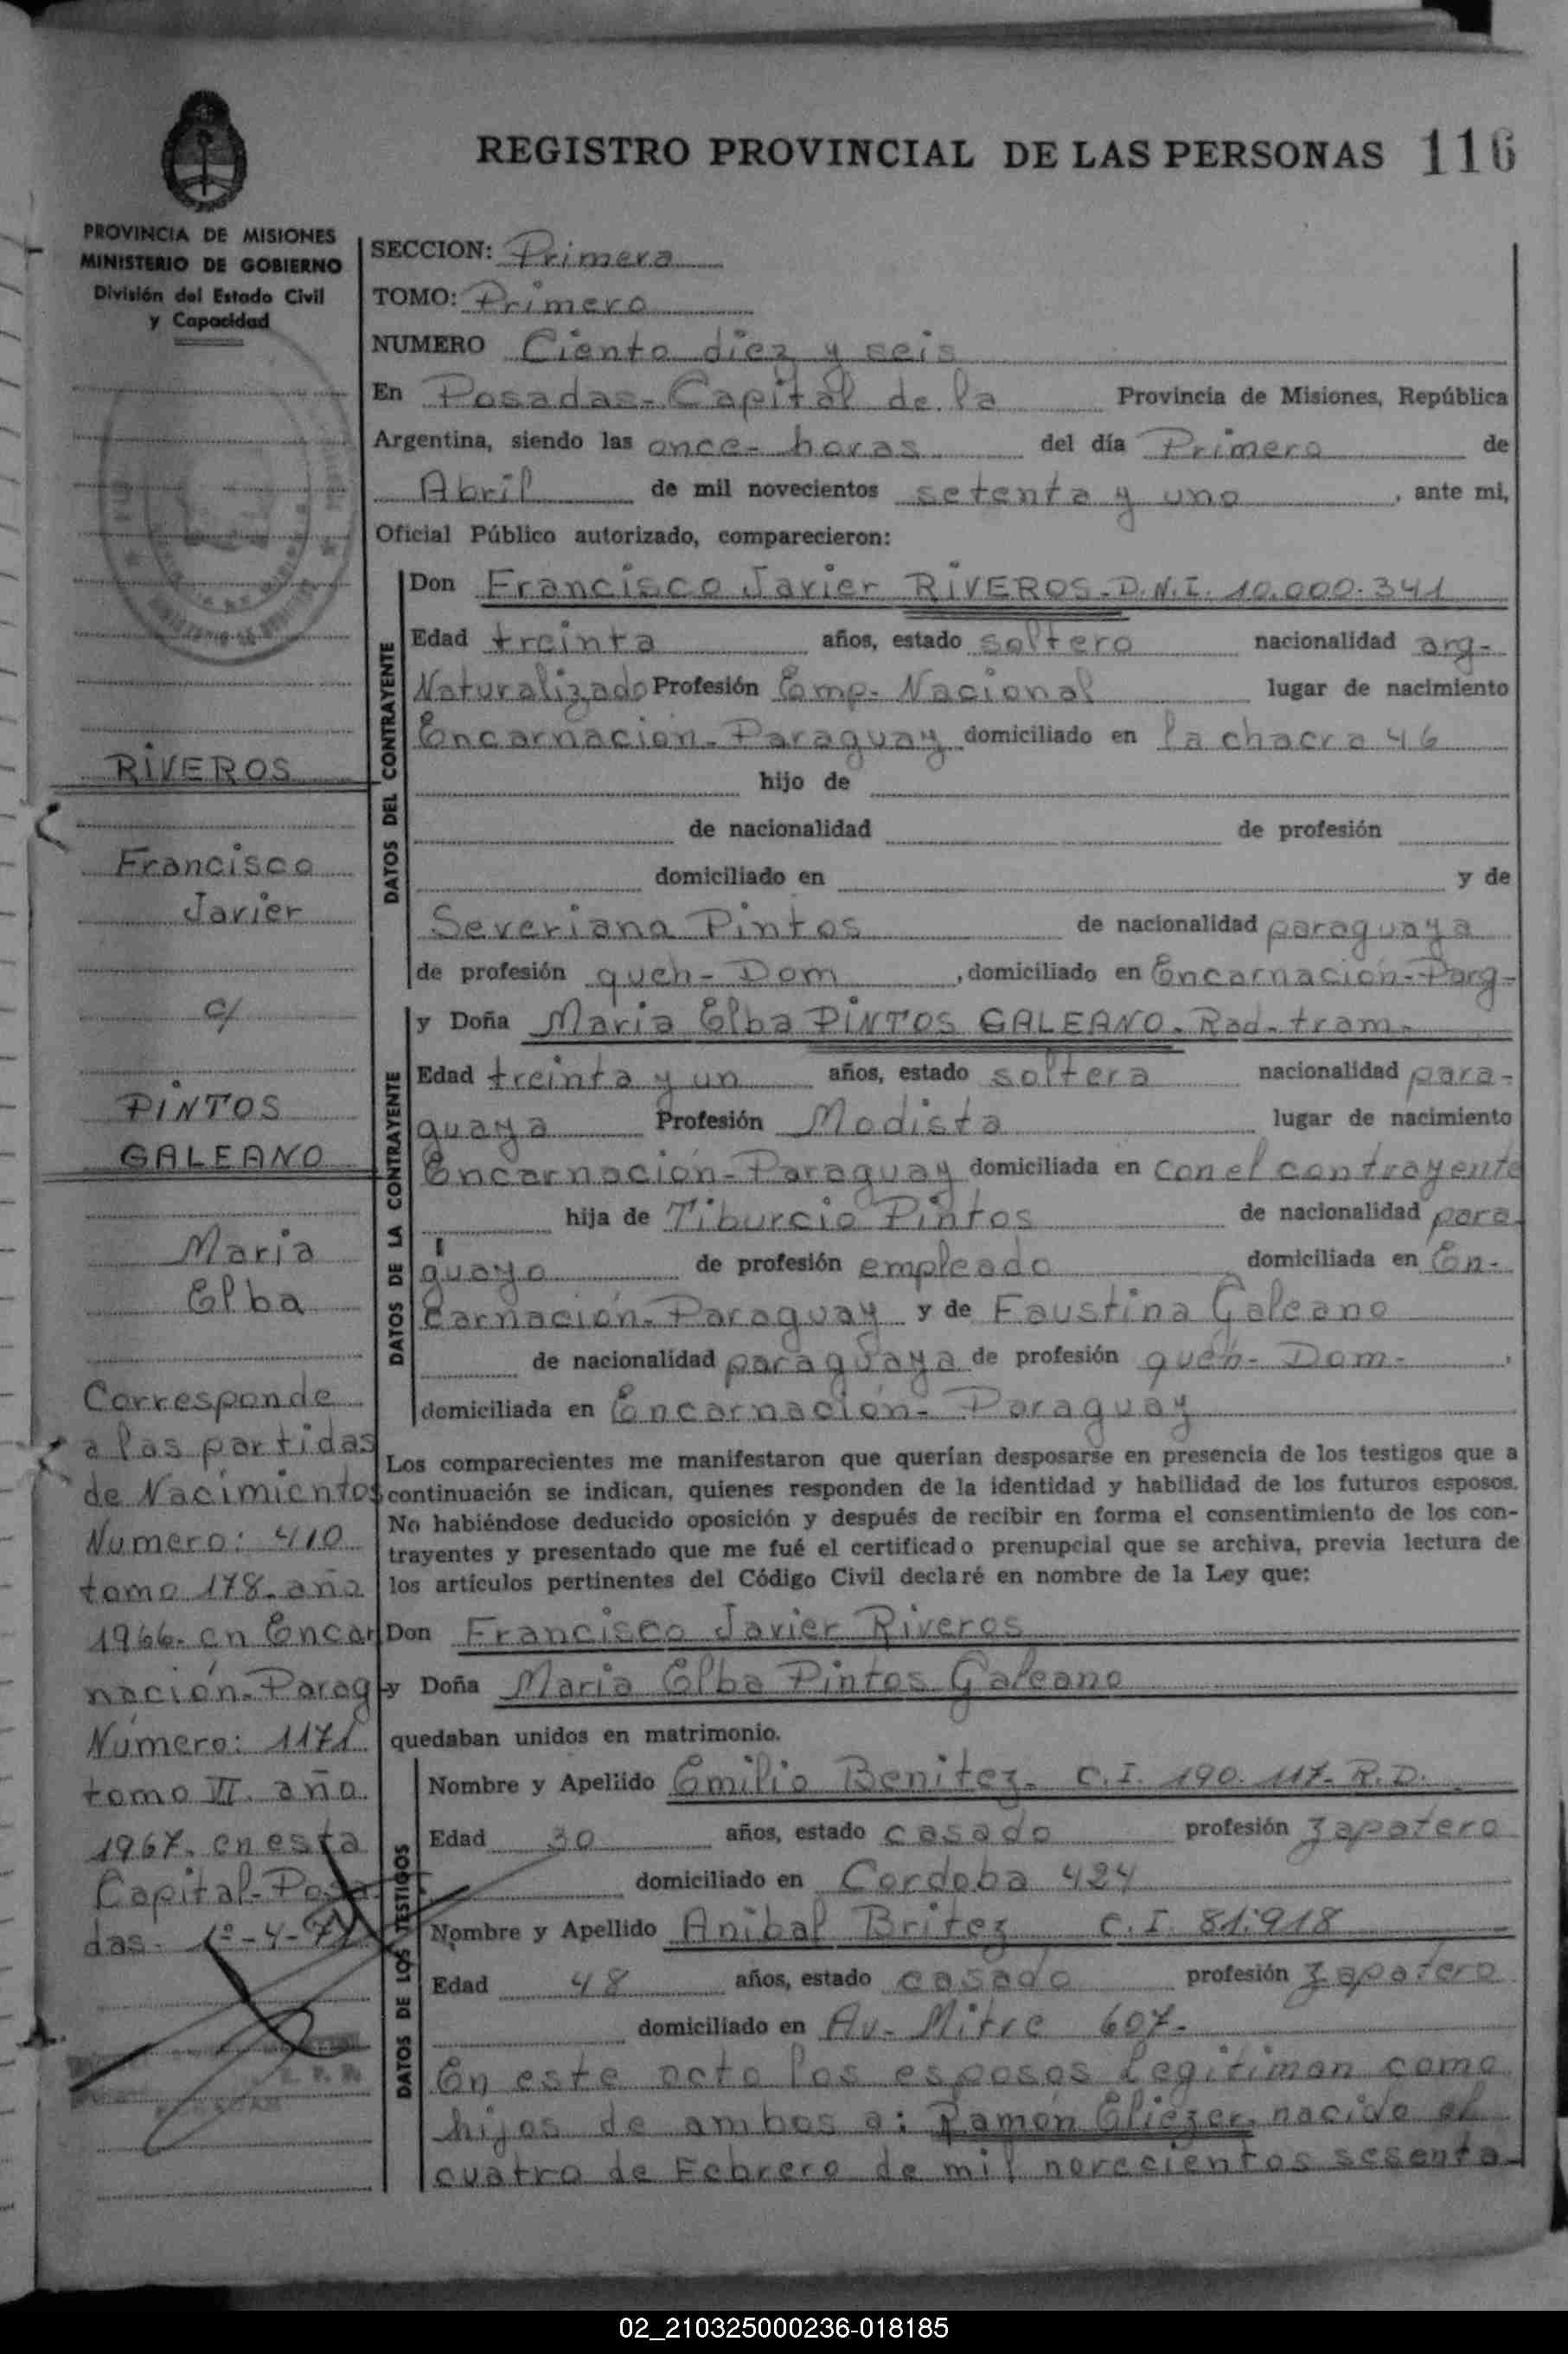 REGISTRO PROVINCIAL DE LAS PERSONAS 116
PROVINCIA DE MISIONES
MINISTERIO DE GOBIERNO
División del Estado Civil
y Capacidad
SECCION: Primera
TOMO: Primero
NUMERO Ciento diez y seis
En Posadas-Capital de la Provincia de Misiones, República
Argentina, siendo las once- horas del día Primero de
Abril de mil novecientos setenta y uno, ante mi,
Oficial Público autorizado, comparecieron:
DATOS DEL CONTRAYENTE
Don Francisco Javier RIVEROS-D.N.I. 10.000.341
Edad treinta años, estado soltero nacionalidad arg-
Naturalizado Profesión Emp- Nacional lugar de nacimiento
Encarnación-Paraguay domiciliado en la chacra 46
hijo de
de nacionalidad de profesión
domiciliado en y de
Severiana Pintos de nacionalidad paraguaya
de profesión queh-Dom, domiciliado en Encarnación-Parg-
DATOS DE LA CONTRAYENTE
y Doña Maria Elba PINTOS GALEANO- Rad-tram-
Edad treinta y un años, estado soltera nacionalidad para-
guaya Profesión Modista lugar de nacimiento
Encarnación-Paraguay domiciliada en con el contrayente
hija de Tiburcio Pintos de nacionalidad para
guayo de profesión empleado domiciliada en En-
carnación-Paraguay y de Faustina Galeano
de nacionalidad paraguaya de profesión queh- Dom-,
domiciliada en Encarnación- Paraguay
Los comparecientes me manifestaron que querían desposarse en presencia de los testigos que a
continuación se indican, quienes responden de la identidad y habilidad de los futuros esposos.
No habiéndose deducido oposición y después de recibir en forma el consentimiento de los con-
trayentes y presentado que me fué el certificado prenupcial que se archiva, previa lectura de
los artículos pertinentes del Código Civil declaré en nombre de la Ley que:
Don Francisco Javier Riveros
y Doña Maria Elba Pintos Galeano
quedaban unidos en matrimonio.
DATOS DE LOS TESTIGOS
Nombre y Apellido Emilio Benitez- C.I. 190.117- R.D.
Edad 30 años, estado casado profesión zapatero
domiciliado en Cordoba 424
Nombre y Apellido Anibal Britez C.I. 81.918
Edad 48 años, estado casado profesión zapatero
domiciliado en Av- Mitre 607-
En este acto los esposos legitiman como
hijos de ambos a: Ramón Eliezer, nacido el
cuatro de Febrero de mil novecientos sesenta
RIVEROS
Francisco
Javier
c/
PINTOS
GALEANO
Maria
Elba
Corresponde
a las partidas
de Nacimientos
Numero: 410
tomo 178- año
1966- en Encar
nación-Parag-
Número: 1171
tomo VI. año
1967. en esta
Capital-Posa
das- 1º-4-71
02_210325000236-018185